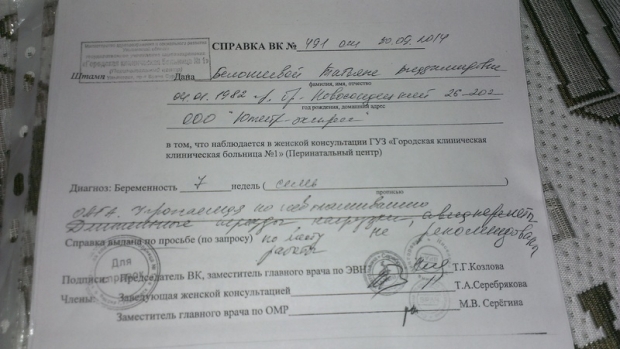 СПРАВКА ВК № 491 от 30.09.2014
"Городская клиническая больница № 1"
Штамп Дана Татьяне Владимировне
фамилия, имя, отчество
04.01.1982 г.р. 26-202
год рождения, домашний адрес
ООО
в том, что наблюдается в женской консультации ГУЗ «Городская клиническая
клиническая больница №1» (Перинатальный центр)
Диагноз: Беременность 7 недель ( семь
прописью
ОАГА. Угрожаемая по невынашиванию
нагрузки, авиаперелет
Справка выдана по просьбе (по запросу) по месту не рекомендованы
работы
Для справок
Подписи: Председатель ВК, заместитель главного врача по ЭВН Т.Г.Козлова
Члены: Заведующая женской консультацией Т.А.Серебрякова
Заместитель главного врача по ОМР М.В. Серёгина